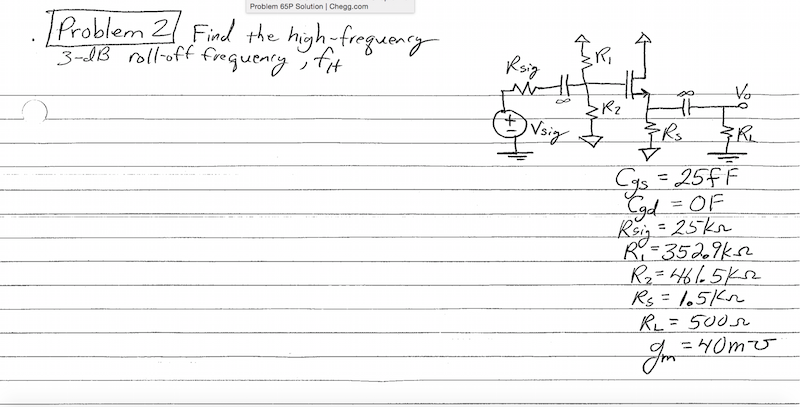 Problem 65P Solution | Chegg.com
Problem 2 Find the high-frequency
3-dB roll-off frequency, fH
Rsig
R1
∞
R2
+
-
Vsig
∞
Vo
RS
RL
Cgs = 25fF
Cgd = 0F
Rsig = 25kΩ
R1 = 352.9kΩ
R2 = 461.5kΩ
RS = 1.5kΩ
RL = 500Ω
gm = 40m℧